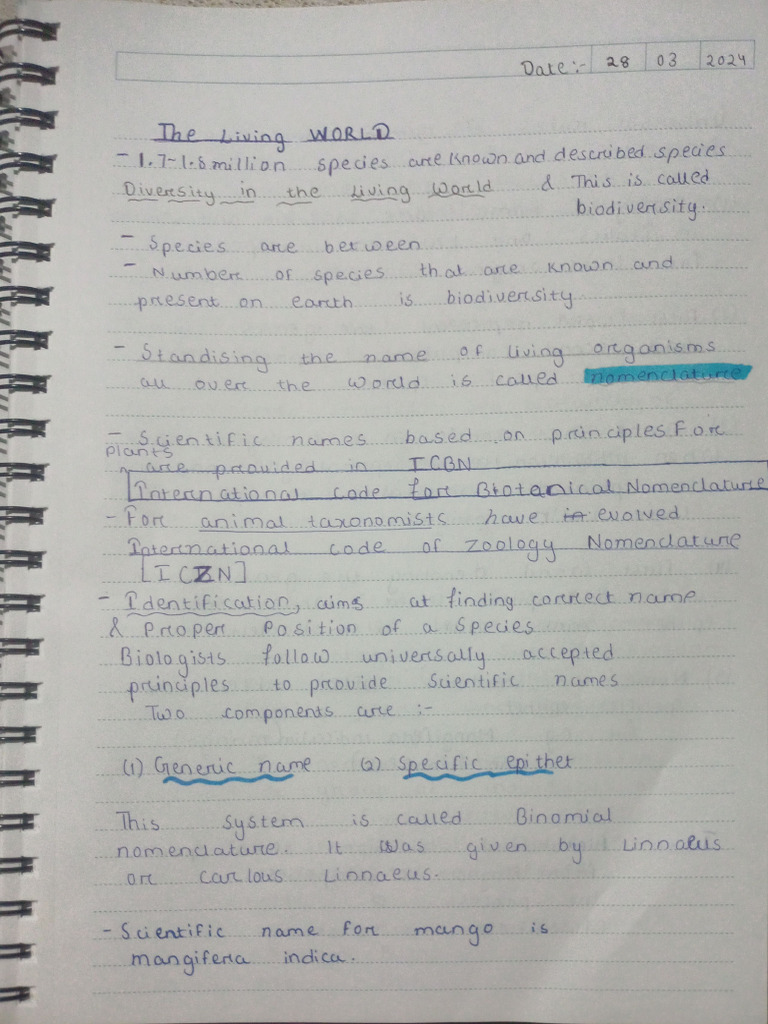 Date:- 28 03 2024
The Living WORLD
- 1.7-1.8 million species are known and described species
Diversity in the Living World & This is called
biodiversity.
- Species are between
- Number of species that are known and
present on earth is biodiversity
- Standising the name of living organisms
all over the world is called nomenclature
- Scientific names based on principles For
plants
are provided in ICBN
International code for Botanical Nomenclature
- For animal taxonomists have in evolved
International code of Zoology Nomenclature
[ICZN]
- Identification, aims at finding correct name
& Proper Position of a Species
Biologists follow universally accepted
principles to provide Scientific names
Two components are :-
(1) Generic name (2) Specific epithet
This system is called Binomial
nomenclature. It was given by Linnaeus
or Carlous Linnaeus.
- Scientific name for mango is
mangifera indica.